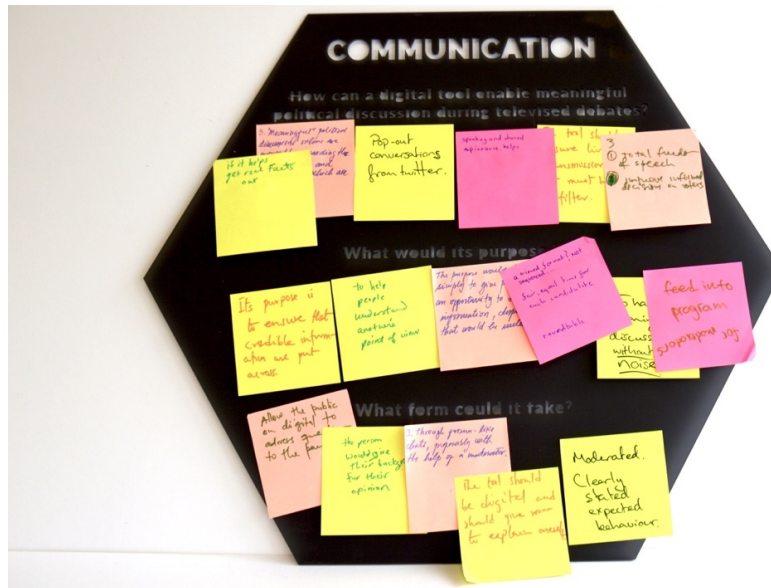 COMMUNICATION
How can a digital tool enable meaningful
political discussion during televised debates?
3. "Meaningful" political
discussions
and
which are
if it helps
get real Facts
out
Pop-out
conversations
from twitter.
speaking and shared
helps
tool should
filter.
3
① total freedom
of speech
② improve informed
decision on voters
What would its purpose
Its purpose is
to ensure that
credible inform-
ation are put
across.
to help
people
understand
another
point of view
The purpose would
simply to give
an opportunity to
information,
that would be
a mixed format?
equal time for
each candidate.
roundtable
discuss
without
NOISE
feed into
program
for moderators
What form could it take?
Allow the public
on digital to
adress
to the
the person
would give
their backg
for their
opinion
3. Through forum-like
chats, with
the help of a "moderator"
The tool should
be digital and
should give room
to explain oneself
Moderated.
Clearly
stated
expected
behaviour.